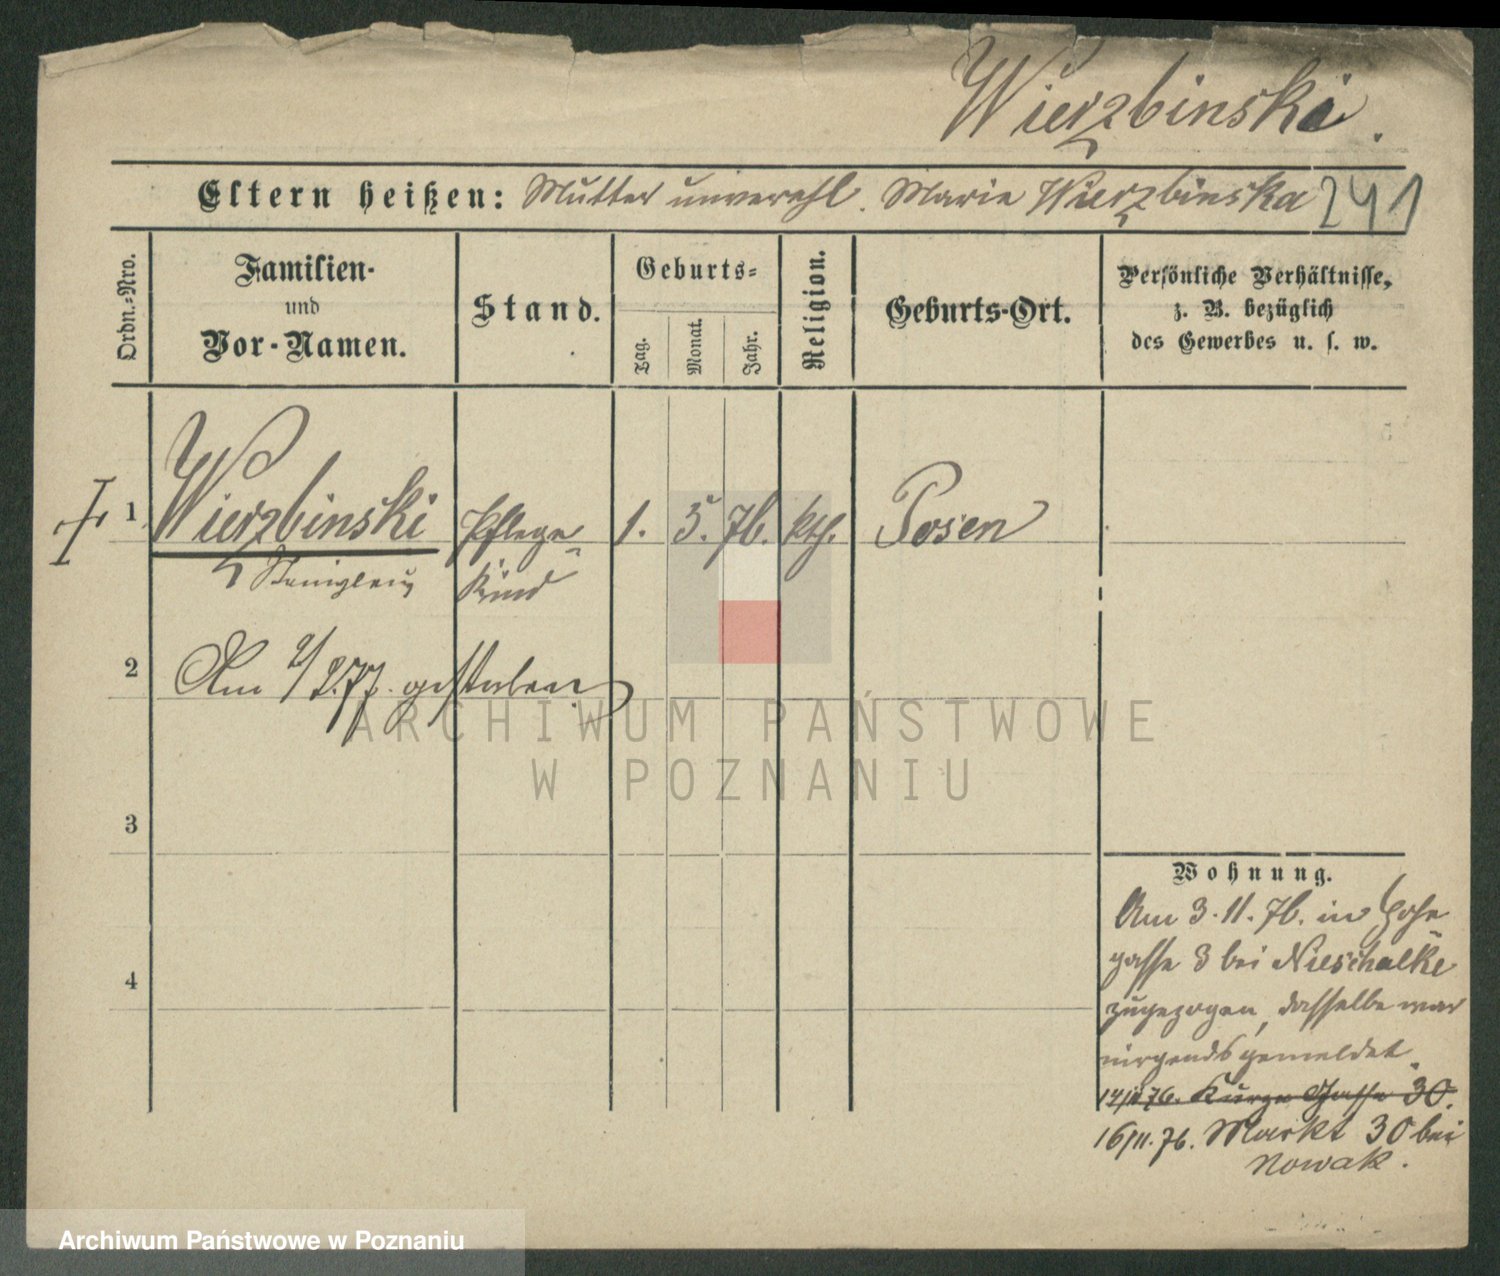 Wierzbinski.
Eltern heißen: Mutter unverehl. Marie Wierzbinska 241
Ordn.-Nro.
Familien-
und
Vor-Namen.
Stand.
Geburts-
Tag.
Monat.
Jahr.
Religion.
Geburts-Ort.
Persönliche Verhältnisse,
z. B. bezüglich
des Gewerbes u. s. w.
1 Wierzbinski Pflege- 1. 5. 76. kth. Posen
Stanislaus Kind
2 Am 2/2.77. gestorben
3
4
Wohnung.
Am 3.11.76. in Hohe
gasse 3 bei Nieschalke
zugezogen, dasselbe war
nirgends gemeldet.
14/11 76. Kurze Gasse 30.
16/11.76. Markt 30 bei
Nowak.
ARCHIWUM PAŃSTWOWE
W POZNANIU
Archiwum Państwowe w Poznaniu